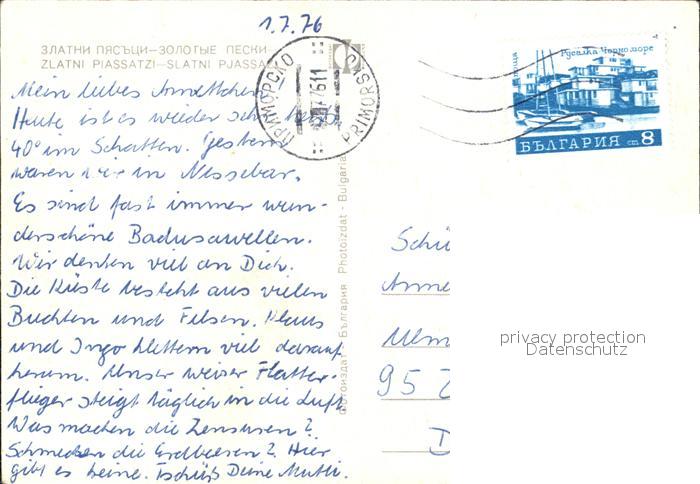 1.7.76
ЗЛАТНИ ПЯСЪЦИ—ЗОЛОТЫЕ ПЕСКИ—
ZLATNI PIASSATZI—SLATNI PJASSA
Mein liebes Annettchen!
Heute ist es wieder sehr heiß
40° im Schatten. Gestern
waren wir in Nessebar.
Es sind fast immer wun-
derschöne Badusawellen.
Wir denken viel an Dich.
Die Küste besteht aus vielen
Buchten und Felsen. Klaus
und Ingo klettern viel darauf
herum. Unser weiser Flatter-
flieger steigt täglich in die Luft.
Was machen die Zensuren?
Schmecken die Erdbeeren? Hier
gibt es keine. Tschüß Deine Mutti.
Фотоиздат - България Photoizdat - Bulgaria
ПРИМОРСКО
PRIMORSKO
Русалка Черноморе
поща
БЪЛГАРИЯ ст. 8
Schü
Anne
Ulm
95
D
privacy protection
Datenschutz